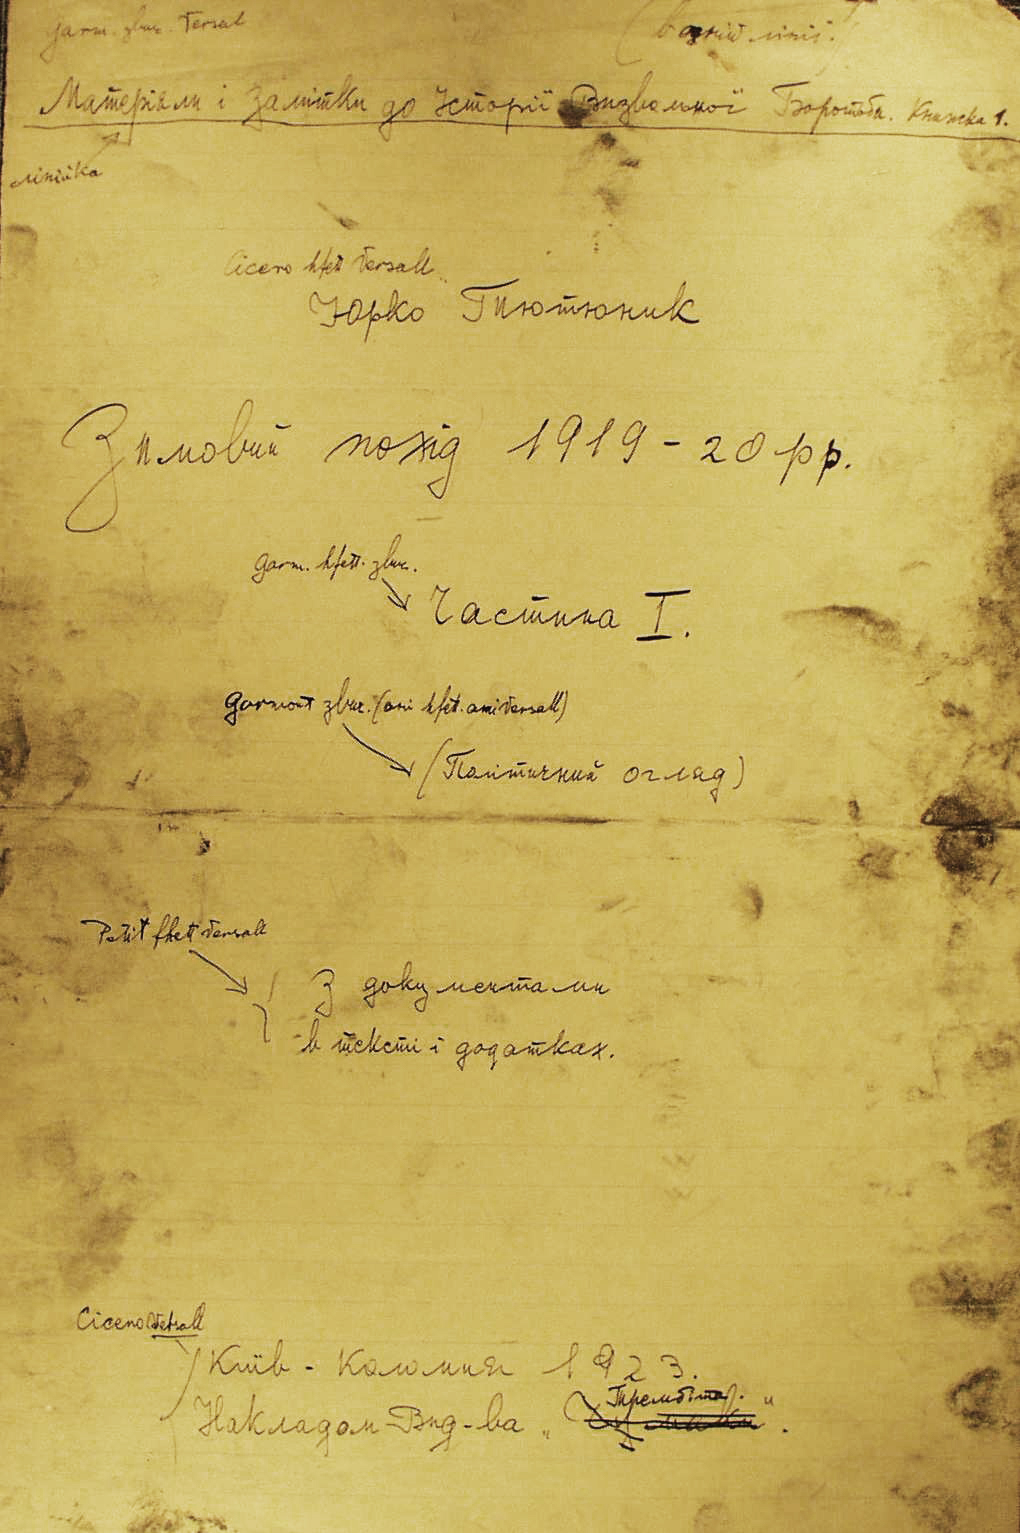 garm. zbur. versal
(в одній лінії.)
Матеріяли і Замітки до Історії Визвольної Боротьби. Книжка 1.
лінійка
Cicero hfett versall
Юрко Тютюник
Зимовий похід 1919-20 рр.
garm. hfett. zbur.
Частина I.
garmont zbur. (ani hfett. ani versall)
(Політичний огляд)
Petit fhett versall
З документами
в тексті і додатках.
Cicero versall
Київ - Коломия 1923.
Трембіта.
Накладом Вид-ва „ ".